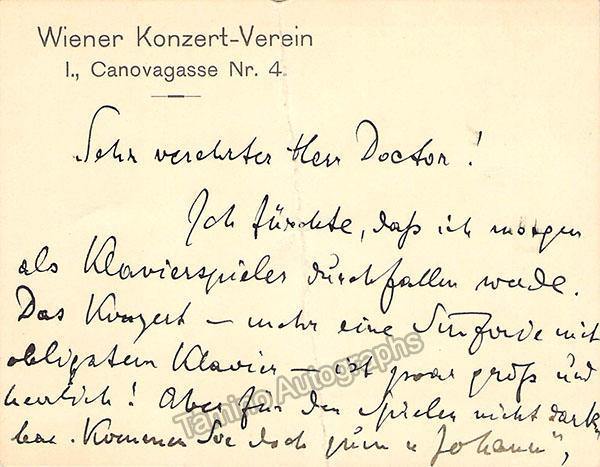 Wiener Konzert-Verein
I., Canovagasse Nr. 4.
Sehr verehrter Herr Doctor!
Ich fürchte, daß ich morgen
als Klavierspieler durchfallen werde.
Das Konzert – mehr eine Sinfonie mit
obligatem Klavier – ist zwar groß und
herrlich! Aber für den Spieler nicht dank
bar. Kommen Sie doch zum „Johann",
Tamino Autographs